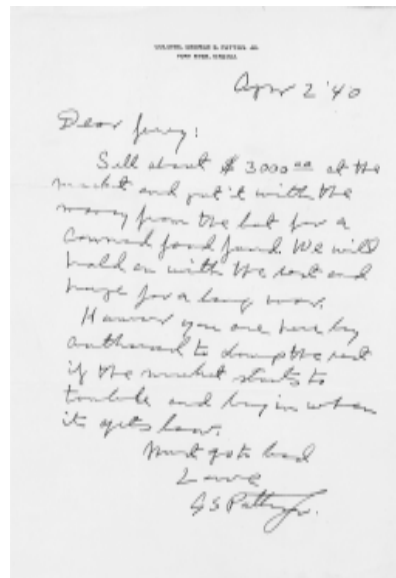 COLONEL GEORGE S. PATTON, JR.
FORT MYER, VIRGINIA
Apr 2 '40
Dear Jerry:
Sell about $ 3000 00 at the
market and put it with the
money from the lot for a
canned food fund. We will
hold on with the rest and
hope for a long war.
However you are hereby
authorized to dump the rest
if the market starts to
tumble and buy in when
it gets low.
Must go to bed
Love
G S Patton Jr.